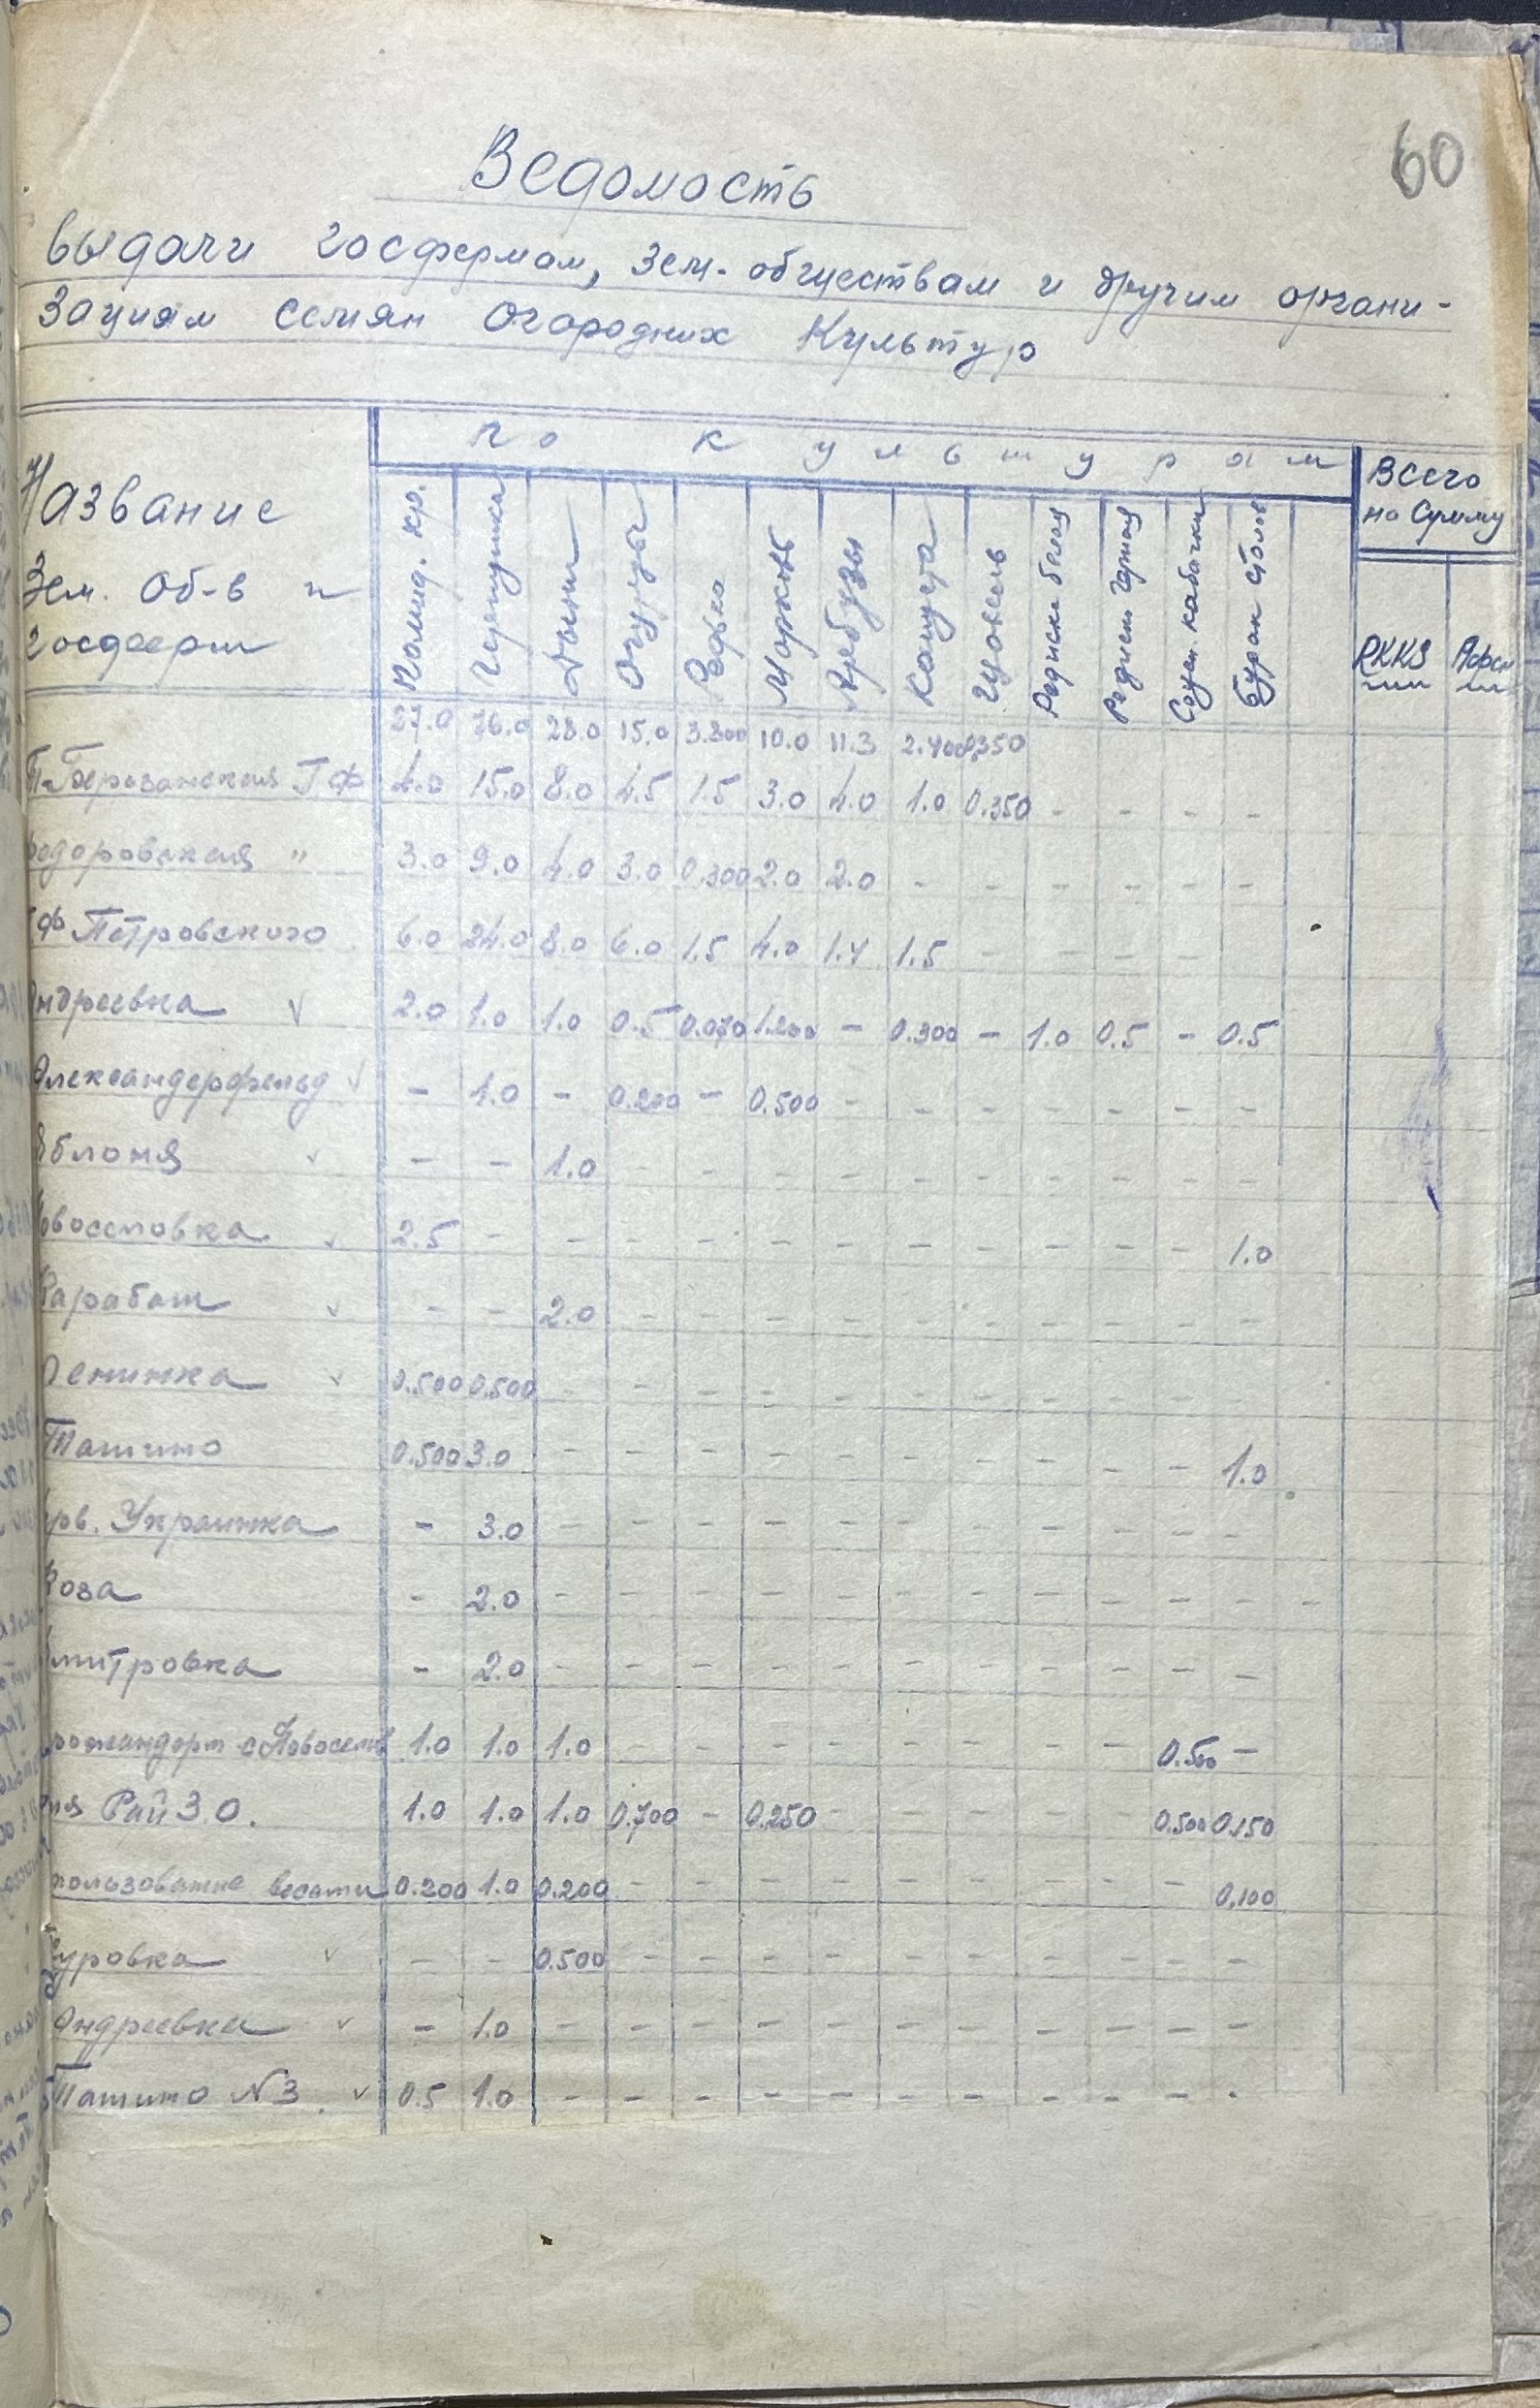 60
Ведомость
выдачи госфермам, Зем. обществам и другим органи-
зациям семян Огородних Культур
Название
Зем. Об-в и
госферм
по культурам
Всего на Сумму
Помид. кр. Цецишка Дыни Огурцы Редька Морковь Арбузы Капуста Цыбуль Редиска белая Редиск. Соуси кабачки Буряк столов RKKS
27.0 76.0 28.0 15.0 3.300 10.0 11.3 2.400 0,350
Т-Березанская ГФ 4.0 15.0 8.0 4.5 1.5 3.0 4.0 1.0 0.350 - - - -
едоровская " 3.0 9.0 4.0 3.0 0.300 2.0 2.0 - - - - - -
ф Петровского 6.0 24.0 8.0 6.0 1.5 4.0 1.4 1.5 - - - -
ндреевка v 2.0 1.0 1.0 0.5 0.070 1.200 - 0.300 - 1.0 0.5 - 0.5
Александерфельд v - 1.0 - 0.200 - 0.500 - - - - - - -
блоня v - - 1.0 - - - - - - - - - -
овоселовка v 2.5 - - - - - - - - - - - 1.0
Карабаш v - - 2.0 - - - - - - - - - -
Ленинка v 0.500 0.500 - - - - - - - - - - -
Ташино 0.500 3.0 - - - - - - - - - - 1.0
рв. Украинка - 3.0 - - - - - - - - - - -
Роза - 2.0 - - - - - - - - - - - -
митровка - 2.0 - - - - - - - - - - -
с Новосел 1.0 1.0 1.0 - - - - - - - - 0.500 -
ля Рай З.О. 1.0 1.0 1.0 0.700 - 0.250 - - - - 0.500 0.150
пользование весами 0.200 1.0 0.200 - - - - - - - - - 0,100
уровка v - - 0.500 - - - - - - - - - -
Андреевка v - 1.0 - - - - - - - - - - -
Ташино N3. v 0.5 1.0 - - - - - - - - - - -